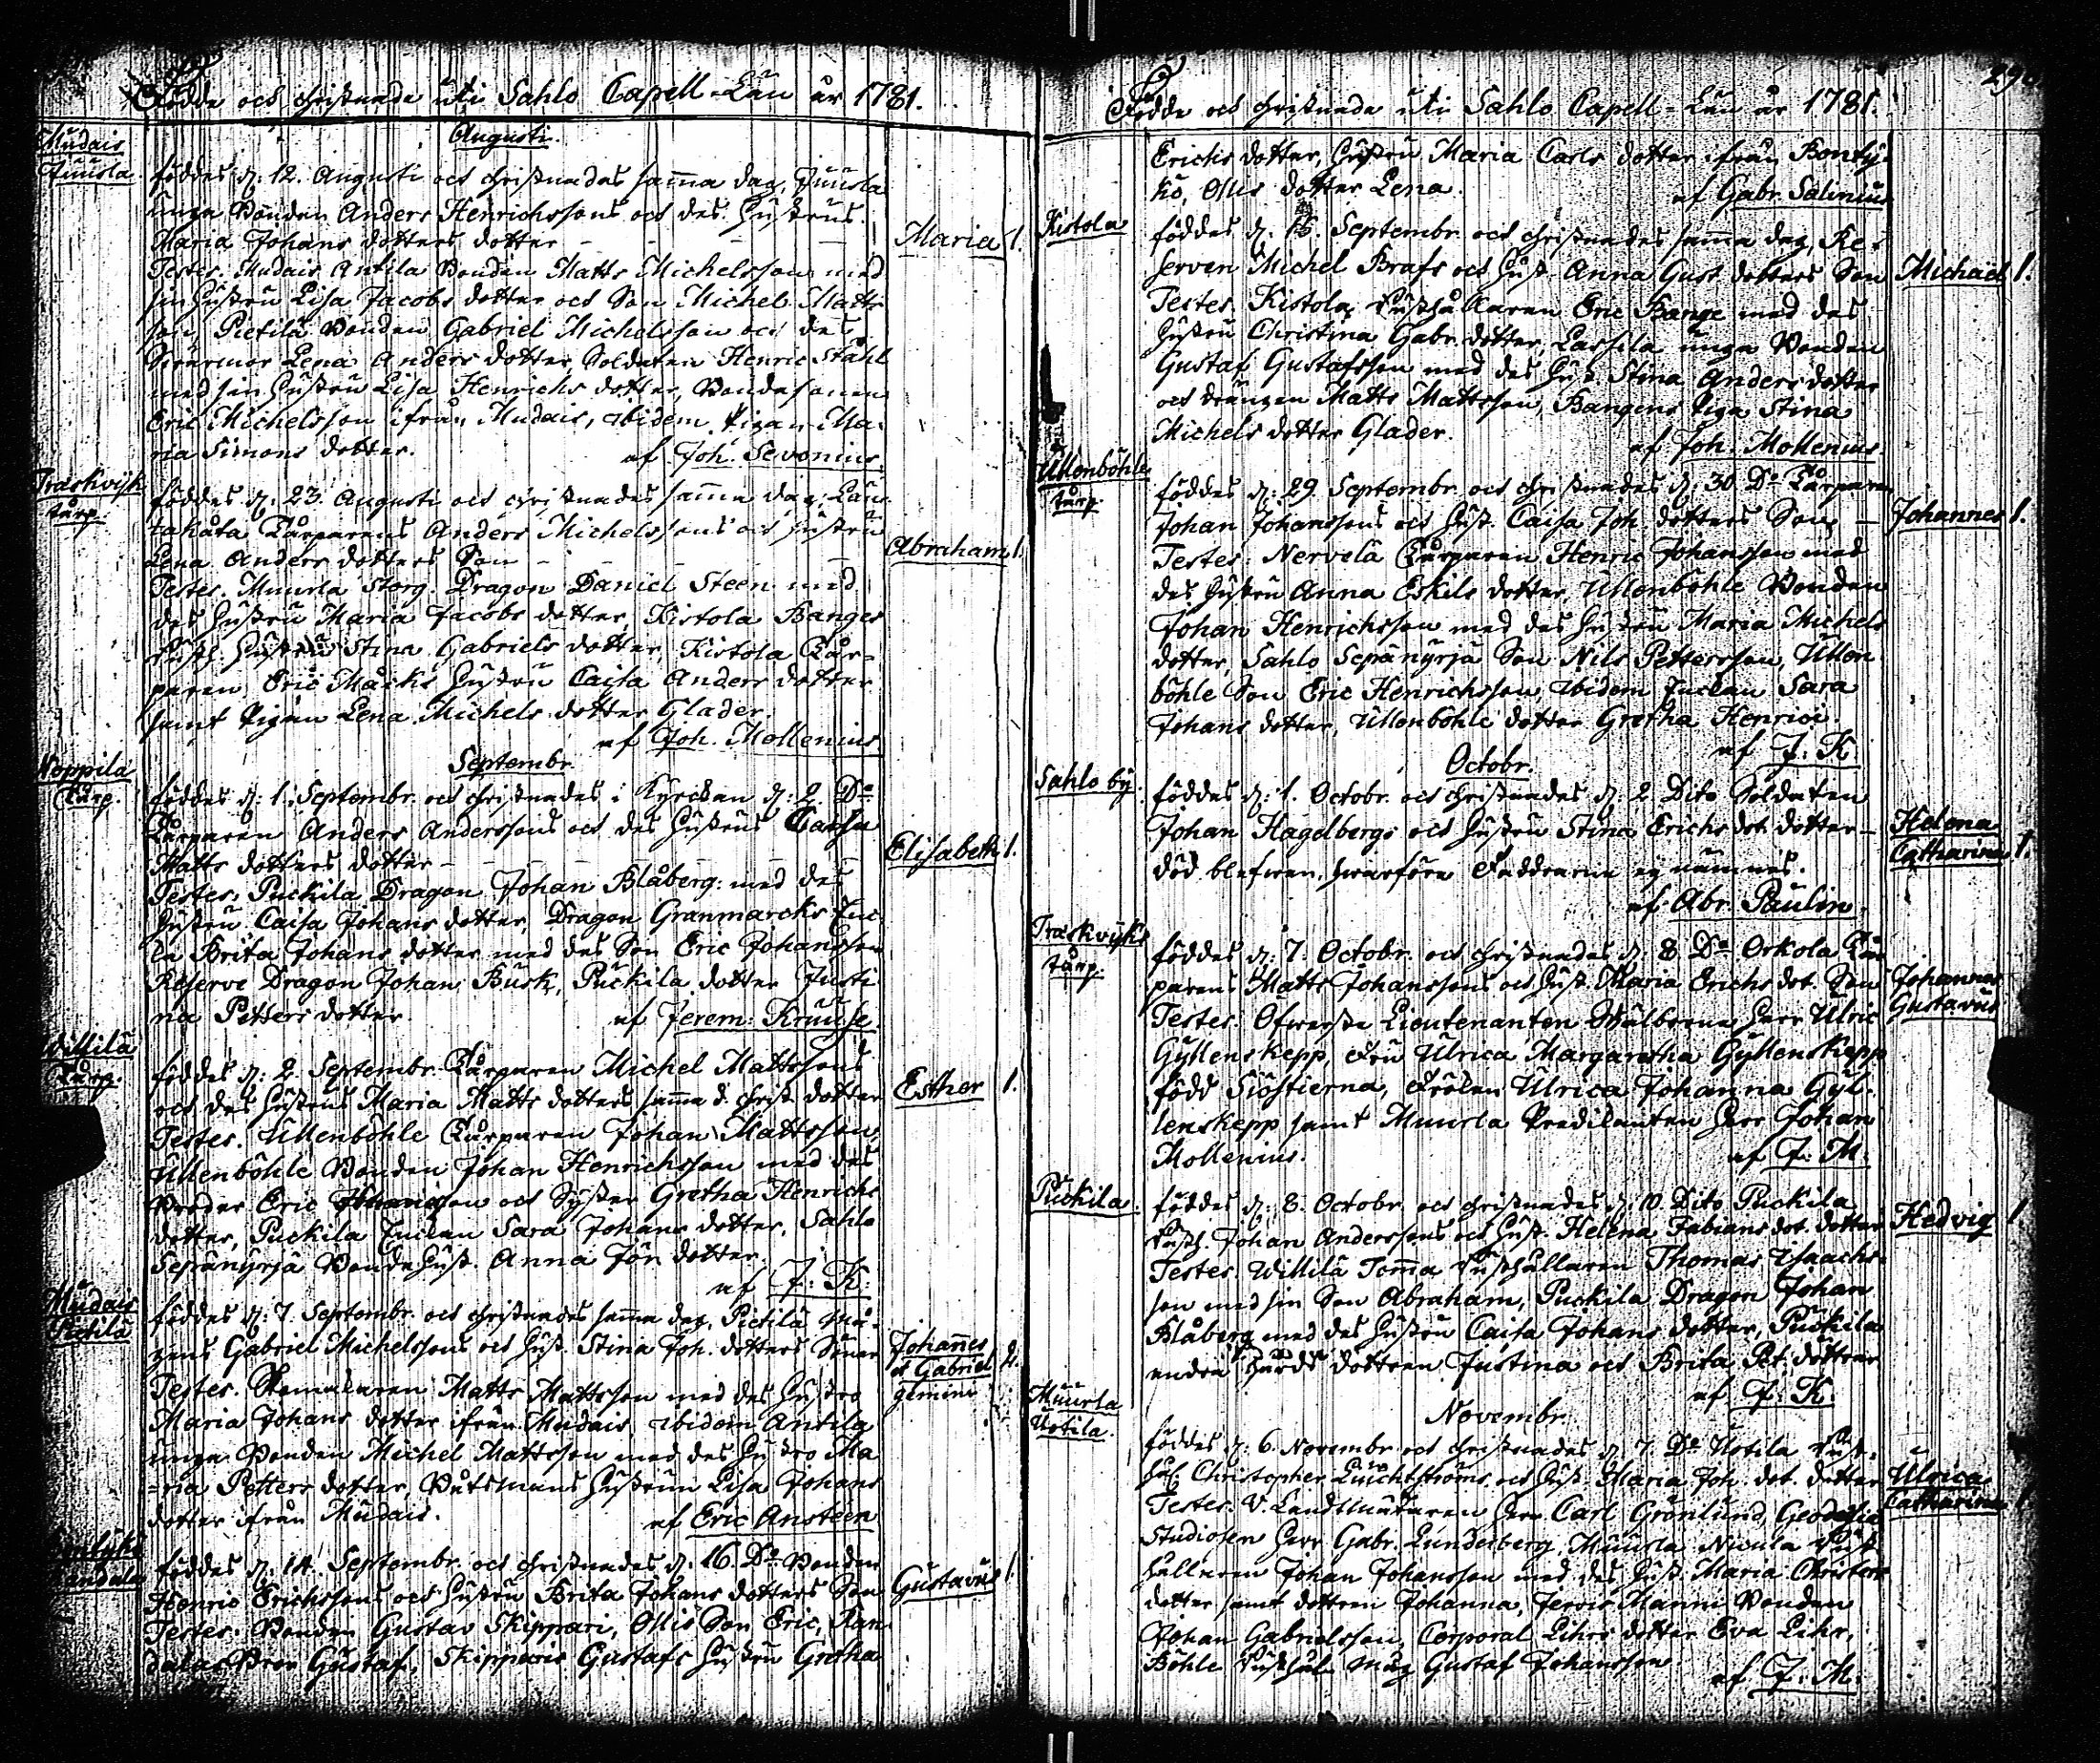 Födde och christnade uti Sahlo Capell-Län år 1781.
Augusti.
Mudais
Juusla
föddes d: 12. Augusti och christnades samma dag, Juusla
unga Bonden Anders Henrichssons och des Hustrus
Maria Johans dotters dotter
Maria 1.
Testes. Mudais Antila Bonden Matts Michelsson med
sin Hustru Lisa Jacobs dotter och Son Michel Matts-
son, Pietilä Bonden Gabriel Michelsson och des
Lena Anders dotter, Soldaten Henric Ståhl
med sin Hustru Lisa Henrichs dotter, Bondesonen
Eric Michelsson ifrån Mudais, ibidem Pigan Ma-
ria Simons dotter.
af Joh. Sevonius
Træskvijk
torp.
föddes d: 23. Augusti och christnades samma dag: Lau-
takåta Torparens Anders Michelssons och Hustru
Lena Anders dotters Son
Abraham 1.
Testes. Muurla Storg. Dragon Daniel Steen med
des Hustru Maria Jacobs dotter, Kistola Banges
Rusth. Hustru Stina Gabriels dotter, Kistola Tor-
paren Eric Måcks Hustru Caisa Anders dotter
samt Pigan Lena Michels dotter Glader.
af Joh. Mollenius
Septembr.
Noppila
Torp.
föddes d: 1. Septembr. och christnades i Kyrckan d: 2 Do
Torparen Anders Anderssons och des Hustrus Caisa
Matts dotters dotter
Elisabeth 1.
Testes. Puckila Dragon Johan Blåberg med des
Hustru Caisa Johans dotter, Dragon Granmarcks Enc-
la Brita Johans dotter med des Son Eric Johansson
Reserve Dragon Johan Busk, Puckila dotter Justi-
na Petters dotter.
af Jerem: Kruuse
Willilä
Torp.
föddes d: 2. Septembr. Torparen Michel Mattssons
och des Hustrus Maria Matts dotters samma d. christ. dotter
Esther 1.
Testes. Ullenböhle Torparen Johan Mattsson,
Ullenböhle Bonden Johan Henrichsson med des
Broder Eric och Syster Gretha Henrichs
dotter, Puckila Enckan Sara Johans dotter, Sahlo
Sepänyrjä Bonde Hust. Anna Jör. dotter
af J: K:
Mudais
Pietilä
föddes d: 7. Septembr. och christnades samma dag, Pietilä Må-
gens Gabriel Michelssons och Hust. Stina Joh. dotters Söner
Johannes
et Gabriel
gemini
2.
Testes. Matts Mattsson med des Hustro
Maria Johans dotter ifrån Mudais, ibidem Antila
unga Bonden Michel Mattsson med des Hustro Ma
=ria Petters dotter, Båtsmans Hustrun Lisa Johans
dotter ifrån Mudais.
af Eric Ansteen
föddes d: 14. Septembr. och christnades d: 16. Do Bonden
Henric Erichssons och Hustru Brita Johans dotters Son
Gustavus 1.
Testes. Bonden Gustav Skippari, Ollis Son Eric, Ran-
dalas Bror Gustaf, Skipparis Gustafs Hustru Gretha
Födde och christnade uti Sahlo Capell-Län år 1781.
Erichs dotter, Hustru Maria Carls dotter ifrån Bonty-
kö, Ollis dotter Lena.
af Gabr. Salinius
Kistola
föddes d: Septembr. och christnades samma dag, Re-
serven Michel Brafs och Hust. Anna Gust. dotters Son
Michaël 1.
Testes. Kistola Rusthållaren Eric Bange med des
Hustru Christina Gabr. dotter, Lassila unga Bonden
Gustaf Gustafsson med des Hust. Stina Anders dotter
och Drängen Matts Mattsson, Bangens Piga Stina
Michels dotter Glader.
af Joh. Mollenius.
Ullenböhle
torp.
föddes d: 29 Septembr. och christnades d: 30 Do Torparen
Johan Johanssons och Hust. Caisa Joh. dotters Son
Johannes 1.
Testes. Nervelä Torparen Henric Johansson med
des Hustru Anna Eskils dotter, Ullenböhle Bonden
Johan Henrichsson med des Hustru Maria Michels
dotter, Sahlo Sepänyrjä Son Nils Pettersson, Ullen-
böhle Son Eric Henrichsson, ibidem Enckan Sara
Johans dotter, Ullenböhle dotter Gretha Henrici.
af J: K
Octobr.
Sahlo by
föddes d: 1. Octobr. och christnades d: 2 Dito Soldaten
Johan Hagelbergs och Hustru Stina Erichs dot. dotter
Helena
Catharina 1.
död blefwen, hwarföre Faddrarne ej nämnes.
af Abr. Paulin.
Træskvijks
torp.
föddes d: 7. Octobr. och christnades d: 8. Do Orkola Tor-
parens Matts Johanssons och Hust. Maria Erichs dot. Son
Johannes
Gustavus
Testes. Öfwerste Lieutenanten Wälborne Herr Ulric
Gyllenskepp, Fru Ulrica Margaretha Gyllenskepp
född Siöstierna, Frölen Ulrica Johanna Gyl-
lenskepp samt Muurla Predikanten Herr Johan
Mollenius.
af J: M:
Puckila.
föddes d: 8. Octobr. och christnades d: 10. Dito Puckila
Rusth. Johan Anderssons och Hust. Helena Fabians dot. dotter
Hedvig 1
Testes. Willilä Tomma Rusthållaren Thomas Isaachs-
son med sin Son Abraham, Puckila Dragon Johan
Blåberg med des Hustru Caisa Johans dotter, Puckila
andra döttren Justina och Brita Pet. döttrar
af J: K.
Novembr.
Muurla
Uotila.
föddes d: 6. Novembr. och christnades d: 7. Do Uotila Rust-
hål. Christopher Luuchtströms och Hust. Maria Joh. dot. dotter
Ulrica
Catharina 1.
Testes. V. Landtmätaren Herr Carl Grönlund, Geodesiæ
Studiosen Herr Gabr. Lunderberg, Muurla Nicula Rust-
hållaren Johan Johansson med des Hust. Maria Christers
dotter samt dottren Johanna, Jervis Manni Bonden
Johan Gabrielsson, Corporal Lihrs dotter Eva Lihr,
Böhle Rusthål. Måg Gustaf Johansson
af J: M: